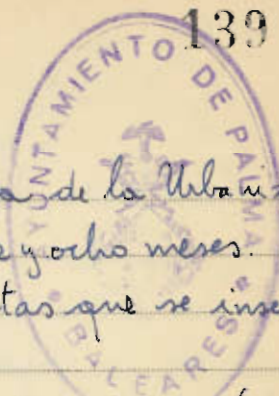 139
AYUNTAMIENTO DE PALMA
BALEARES
as de la Urbanis
e y ocho meses.
tas que se inse